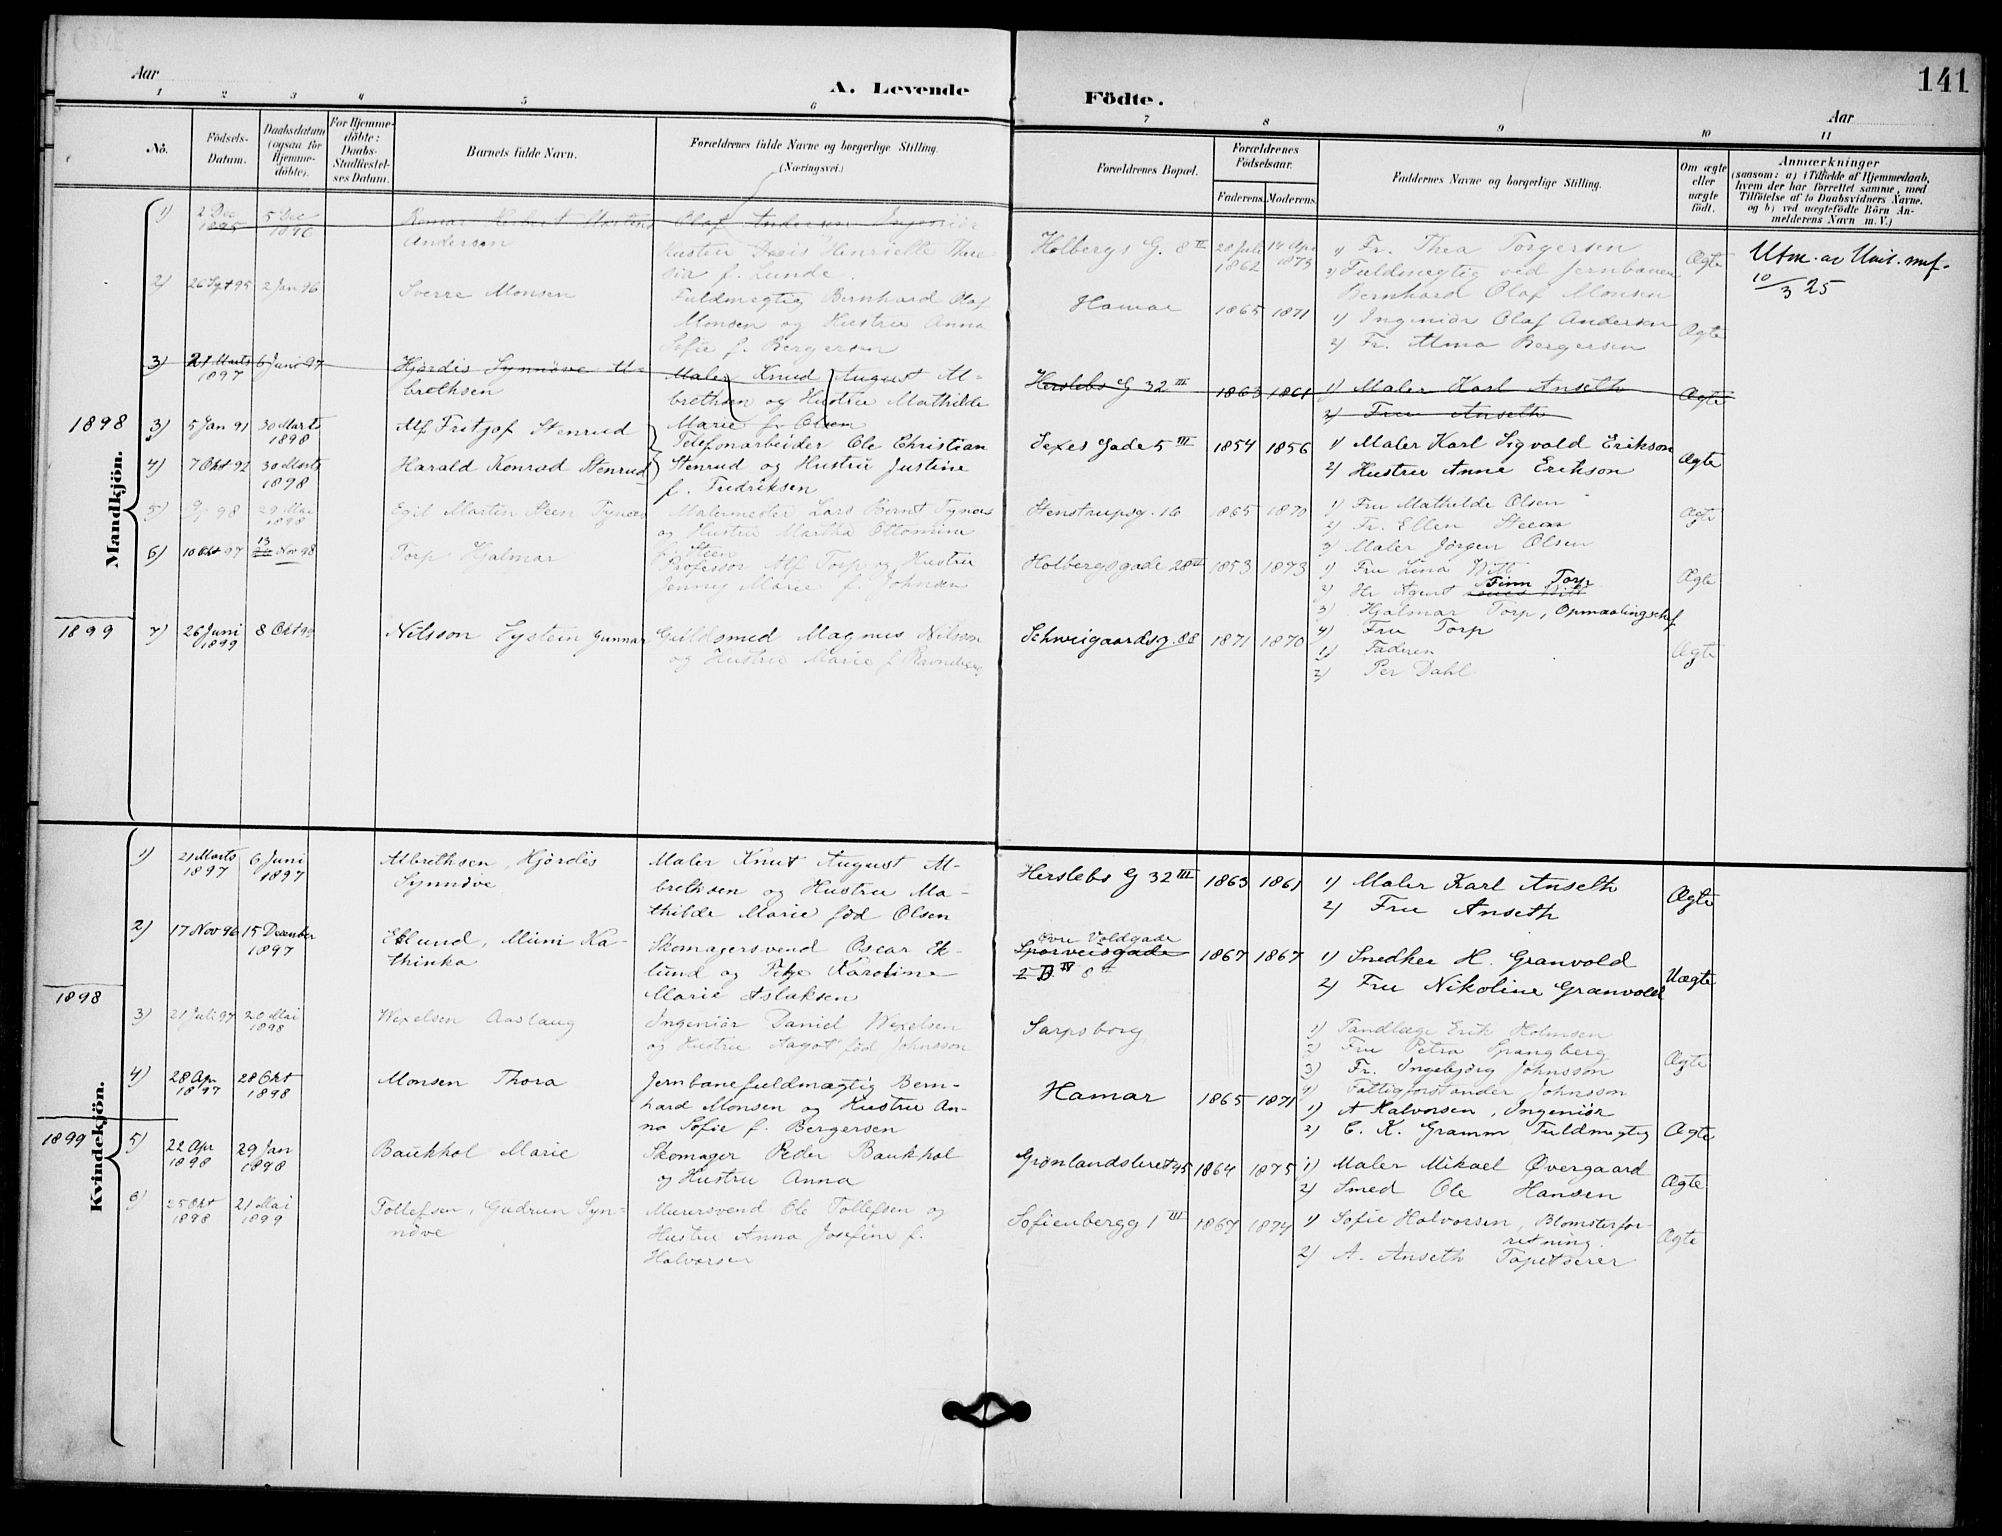 141
Aar
A. Levende Födte.
Aar
1 2 3 4 5 6 7 8 9 10 11
No.
Födsels-
Datum.
Daabsdatum
(ogsaa for
Hjemme-
döbte).
For Hjemme-
döbte:
Daabs-
Stadfæstel-
ses Datum.
Barnets fulde Navn.
Forældrenes fulde Navne og borgerlige Stilling.
(Næringsvei.)
Forældrenes Bopæl.
Forældrenes
Födselsaar.
Faderens. Moderens.
Faddernes Navne og borgerlige Stilling.
Om ægte
eller
uægte
födt.
Anmærkninger
(saasom: a) i Tilfælde af Hjemmedaab,
hvem der har forrettet samme, med
Tilföielse af to Daabsvidners Navne,
og b) ved uægtefödte Börn An-
melderens Navn m. V.)
Mandkjön.
1) 2 Dec 1895 5 Dec 1896
Andersen
Olaf Andersen Ingeniör
Hustru Henriette
f. Lunde.
Holbergs G. 8 II
1862 1873
1) Fr. Thea Torgersen
2) Fuldmegtig ved Jernbanen
Bernhard Olaf Monsen
Ægte
10/3 25
2) 26 Sept 95 2 Jan 96
Sverre Monsen
Fuldmegtig Bernhard Olaf
Monsen og Hustru Anna
Sofie f. Bergersen
Hamar
1865 1871
1) Ingeniör Olaf Andersen
2) Fr. Alma Bergersen
Ægte
3) 21 Marts 1897 6 Juni 97
Hjördis Synnöve Al-
brethsen
Maler Knud August Al-
brethsen og Hustru Mathilde
Marie f. Olsen
Herslebs G 32 III
1863 1861
1) Maler Karl Anseth
2) Fru Anseth
Ægte
1898
3) 5 Jan 91 30 Marts 1898
Alf Fritjof Stenrud
4) 7 Okt 92 30 Marts 1898
Harald Konrad Stenrud
Telefonarbeider Ole Christian
Stenrud og Hustru Justine
f. Fredriksen
Sexes Gade 5 III
1854 1856
1) Maler Karl Sigvald Erikson
2) Hustru Anne Erikson
Ægte
5) 98 29 Mai 1898
Egil Martin Steen Tynæs
Malermester Lars Bernt Tynæs
og Hustru Martha Ottomine
f. Steen
Stenstrupsg. 16
1865 1870
1) Fru Mathilde Olsen
2) Fr. Ellen Steen
3) Maler Jörgen Olsen
Ægte
6) 10 Okt 97 13 Nov 98
Torp Hjalmar
Professor Alf Torp og Hustru
Jenny Marie f. Johnsen
Holbergsgade 28 III
1853 1873
1) Fru Lina Witt
2) Hr Agent Finn Torp
3) Hjalmar Torp, Opmaalingschef
4) Fru Torp
Ægte
1899
7) 26 Juni 1899 8 Okt 99
Nilsson Eystein Gunnar
Guldsmed Magnus Nilson
og Hustru Marie f.
Schweigaardsg. 88
1871 1870
1) Faderen
2) Per Dahl
Ægte
Kvindekjön.
1) 21 Marts 1897 6 Juni 1897
Albrethsen, Hjördis
Synnöve
Maler Knut August Al-
brethsen og Hustru Ma-
thilde Marie föd Olsen
Herslebs G 32 III
1863 1861
1) Maler Karl Anseth
2) Fru Anseth
Ægte
2) 17 Nov 96 15 December 1897
Eklund, Mimi Ka-
thinka
Skomagersvend Oscar Ek-
lund og Pige Karoline
Marie Aslaksen
Övre Voldgade
Sporveisgade
2 B IV 8
1867 1867
1) Snedker H. Granvold
2) Fru Nikoline Granvold
Uægte
1898
3) 21 Juli 97 20 Mai 1898
Wexelsen Aaslaug
Ingeniör Daniel Wexelsen
og Hustru Aagot föd Johnsson
Sarpsborg
1) Tandlæge Erik Holmsen
2) Fru Petra Spangberg
3) Fr. Ingebjörg Johnsson
4) Fattigforstander Johnsson
Ægte
4) 28 Apr 1897 28 Okt 1898
Monsen Thora
Jernbanefuldmægtig Bern-
hard Monsen og Hustru An-
na Sofie f. Bergersen
Hamar
1865 1871
1) A Halvorsen, Ingeniör
2) C. K. Gramm Fuldmegtig
Ægte
1899
5) 22 Apr 1898 29 Jan 1898
Baukhol Marie
Skomager Peder Baukhol
og Hustru Anna
Grönlandsleret 45
1864 1875
1) Maler Mikael Övergaard
2) Smed Ole Hansen
Ægte
6) 25 Okt 1898 21 Mai 1899
Tollefsen, Gudrun Syn-
növe
Murersvend Ole Tollefsen og
Hustru Anna Josefine f.
Halvorsen
Sofienbergg 1 III
1867 1874
1) Sofie Halvorsen, Blomsterfor-
retning.
2) A. Anseth Tapetserer
Ægte